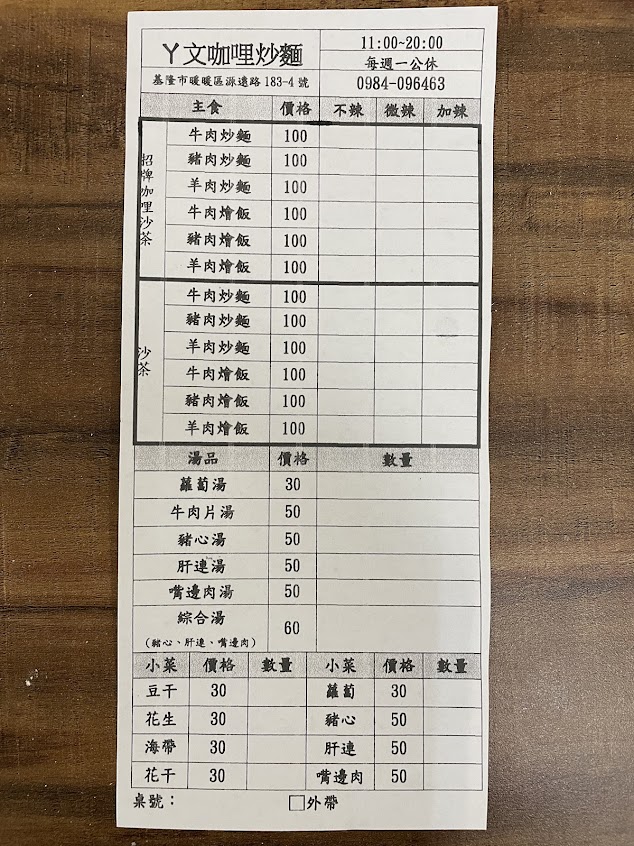 丫文咖哩炒麵
11:00~20:00
每週一公休
基隆市暖暖區源遠路183-4號
0984-096463
主食 價格 不辣 微辣 加辣
招牌咖哩沙茶
牛肉炒麵 100
豬肉炒麵 100
羊肉炒麵 100
牛肉燴飯 100
豬肉燴飯 100
羊肉燴飯 100
沙茶
牛肉炒麵 100
豬肉炒麵 100
羊肉炒麵 100
牛肉燴飯 100
豬肉燴飯 100
羊肉燴飯 100
湯品 價格 數量
蘿蔔湯 30
牛肉片湯 50
豬心湯 50
肝連湯 50
嘴邊肉湯 50
綜合湯 60
(豬心、肝連、嘴邊肉)
小菜 價格 數量 小菜 價格 數量
豆干 30 蘿蔔 30
花生 30 豬心 50
海帶 30 肝連 50
花干 30 嘴邊肉 50
桌號： □外帶